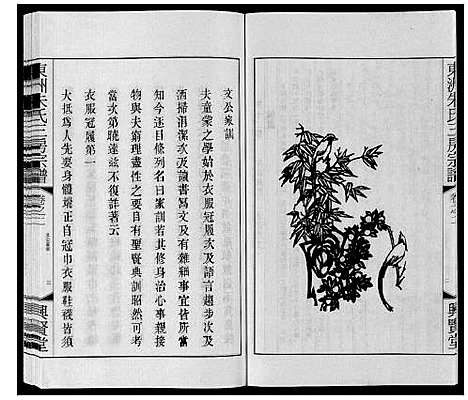 東洲朱氏三房宗譜
卷之二
興賢堂
文公家訓
夫童蒙之學始於衣服冠履次及語言趨步次及
洒掃涓潔次及讀書寫文及有雜細事宜皆所當
知今逐目條列名曰家訓若其修身治心事親接
物與夫窮理盡性之要自有聖賢典訓昭然可考
當次第曉達茲不復詳著云
衣服冠履第一
大抵為人先要身體端正自冠巾衣服鞋襪皆須
東洲朱氏三房宗譜
興賢堂